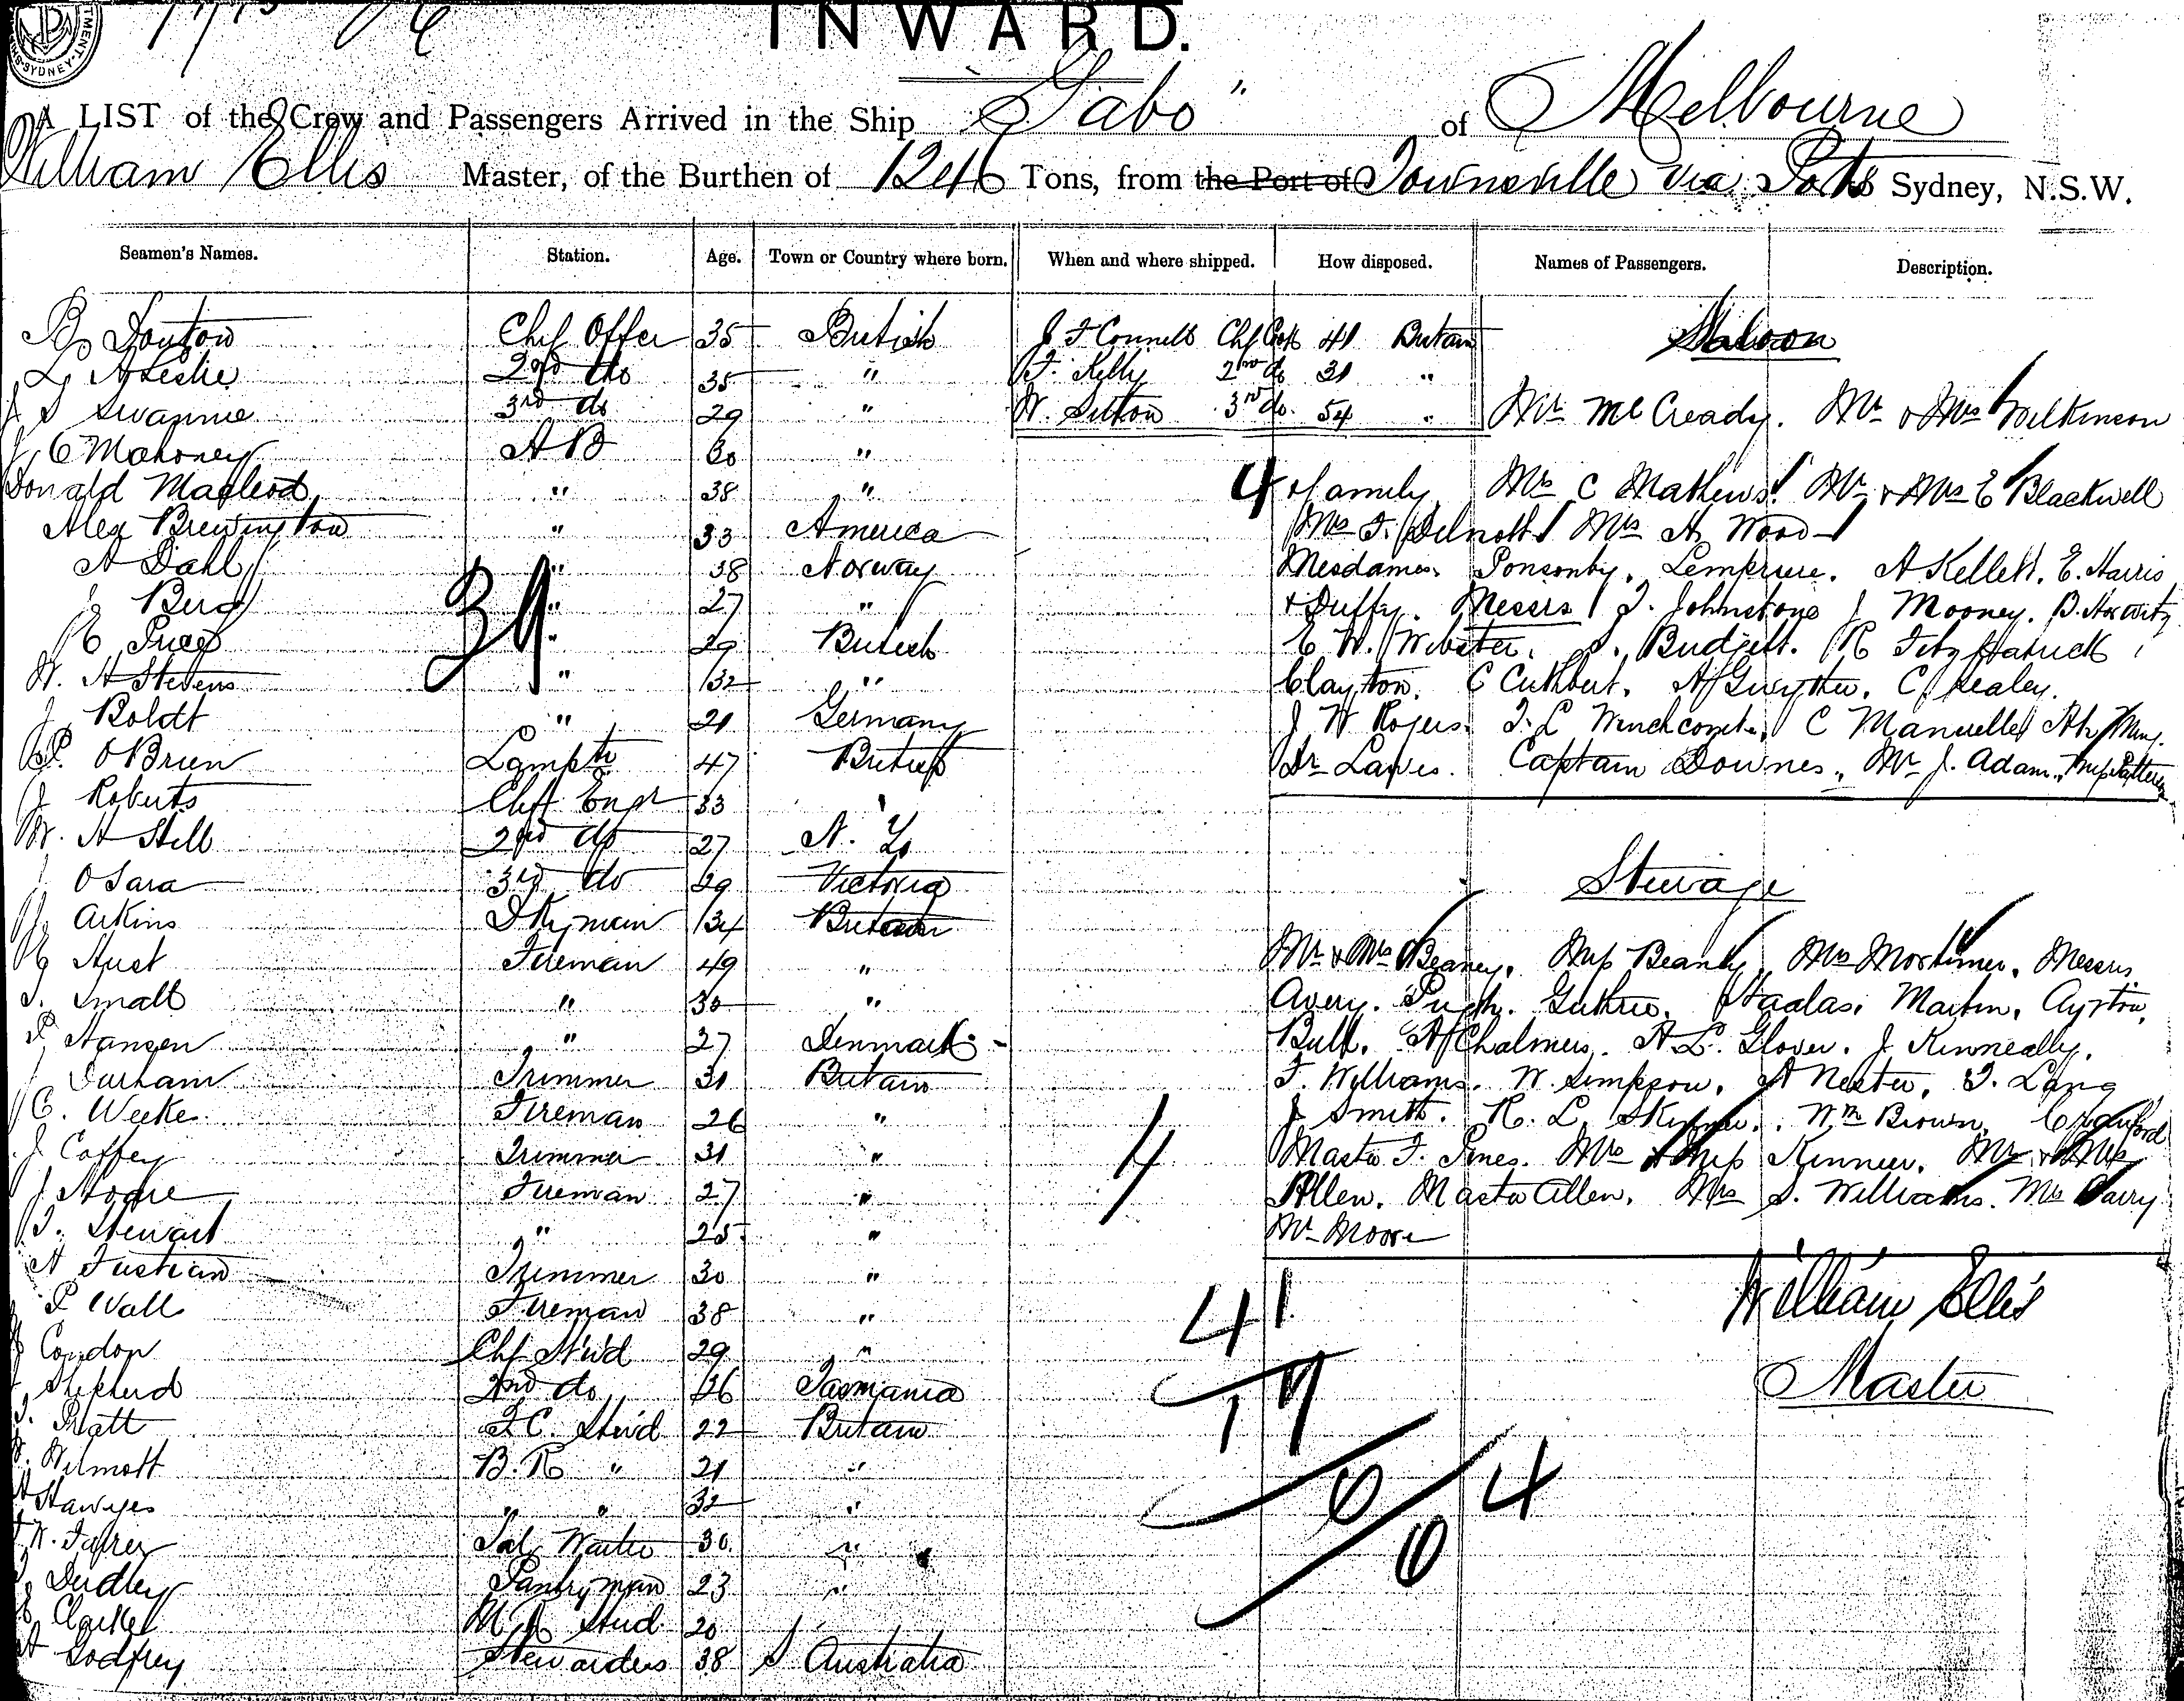 INWARD.
A LIST of the Crew and Passengers Arrived in the Ship "Gabo" of Melbourne
William Ellis Master, of the Burthen of 1246 Tons, from the Port of Townsville via Ports Sydney, N.S.W.
Seamen's Names. Station. Age. Town or Country where born. When and where shipped. How disposed. Names of Passengers. Description.
Saloon
Chf Offer 35 British J F Connell Chf Cook 41 Britain
L A Leslie 2nd do 35 " F. Kelly 2nd do 31 "
J S Swannie 3rd do 29 " W. Sutton 3rd do. 54 " Mr McCready. Mr & Mrs Wilkinson
J C Mahoney A B 60 "
Donald Macleod " 38 " 4 & family Mrs C Mathews. Mr & Mrs E Blackwell
Alex Brewington " 33 America Mrs A Wood
A Dahl " 38 Norway Mesdames Ponsonby, Lempriere. A Kellett, E. Harris
J Berg " 27 " & Duffy. Messrs J. Johnstone J Mooney. B. Horwitz
39
" 29 British E W. Webster. S. Budgett. R Fitzpatrick
W. H Stevens " 32 " Clayton. C Cuthbert. A Gwyther. C Healey.
J Boldt " 21 Germany J W Rogers. J. L Winchcombe, C Manuelle
P. O'Brien Lamptr 47 British Dr Laws. Captain Downes, Mr J. Adam.
J Roberts Chf Engr 33 "
W. H Still 2nd do 27 N. Z.
J O'Sara 3rd do 29 Victoria Steerage
J. Arkins Dkyman 34 Britain
Hust Fireman 49 " Mr & Mrs Beaney. Miss Beaney Mrs Mortimer. Messrs
J. Small " 30 " Avery. Pugh. Guthrie. Martin. Ayrton,
P. Hansen " 27 Denmark Bull. A Chalmers. A L. Glover. J Kinneally.
J Durham Trimmer 31 Britain F. Williams. W. Simpson. A Nester. J. Lang
C. Weeke Fireman 26 " J Smith. R. L. Skinner. Wm Brown. Crawford
J Coffey Trimmer 31 " 4 Master F. Pines. Mrs & Miss Kinnier. Mr & Mrs
J Hogue Fireman 27 " Allen. Master Allen. Mrs S. Williams. Mrs Parry
J. Stewart " 25 " Mr Moore
A Fustian Trimmer 30 "
P Wall Fireman 38 " 41 William Ellis
J Condon Chf Stwd 29 "
Shepherd 2nd do 26 Tasmania 19 Master
J. Pratt F.C. Stwd 22 Britain
Wilmott B. R " 21 "
A Hawyes " " 32 " 60 4
W. Farrer Sal Waiter 30 "
J. Dudley Pantryman 23 "
E. Clarke M R Stwd 20
A Godfrey Stewardess 38 S Australia